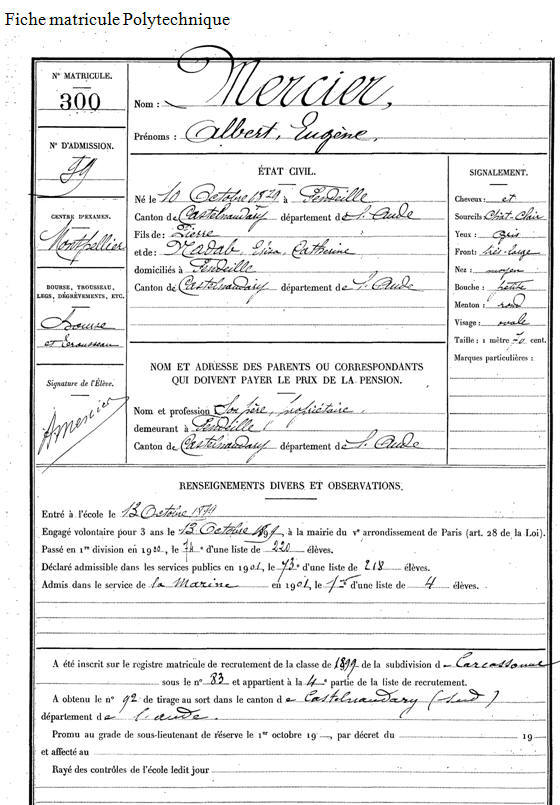 Fiche matricule Polytechnique
N° MATRICULE.
300
Nom : Mercier,
Prénoms : Albert, Eugène,
N° D'ADMISSION.
59
CENTRE D'EXAMEN.
Montpellier
BOURSE, TROUSSEAU,
LEGS, DÉGRÈVEMENTS, ETC.
Bourse
et Trousseau
Signature de l'Élève.
AMercier
ÉTAT CIVIL.
Né le 10 Octobre 1879 à Pendeille
Canton de Castelnaudary département de l'Aude
Fils de : Pierre
et de : Catherine
domiciliés à Pendeille
Canton de Castelnaudary département de l'Aude
NOM ET ADRESSE DES PARENTS OU CORRESPONDANTS
QUI DOIVENT PAYER LE PRIX DE LA PENSION.
Nom et profession Son père, propriétaire
demeurant à Pendeille
Canton de Castelnaudary département de l'Aude
SIGNALEMENT.
Cheveux : et
Sourcils Chât. Clair
Yeux : Gris
Front : très large
Nez : moyen
Bouche : petite
Menton : rond
Visage : ovale
Taille : 1 mètre 70 cent.
Marques particulières :
RENSEIGNEMENTS DIVERS ET OBSERVATIONS.
Entré à l'école le 13 Octobre 1899
Engagé volontaire pour 3 ans le 13 Octobre 1899, à la mairie du Ve arrondissement de Paris (art. 28 de la Loi).
Passé en 1re division en 1900, le 74e d'une liste de 220 élèves.
Déclaré admissible dans les services publics en 1901, le 73e d'une liste de 218 élèves.
Admis dans le service de la Marine en 1901, le 1er d'une liste de 4 élèves.
A été inscrit sur le registre matricule de recrutement de la classe de 1899 de la subdivision de Carcassonne
sous le n° 83 et appartient à la 4e partie de la liste de recrutement.
A obtenu le n° 92 de tirage au sort dans le canton de Castelnaudary (sud)
département de l'aude.
Promu au grade de sous-lieutenant de réserve le 1er octobre 19 , par décret du 19
et affecté au
Rayé des contrôles de l'école ledit jour